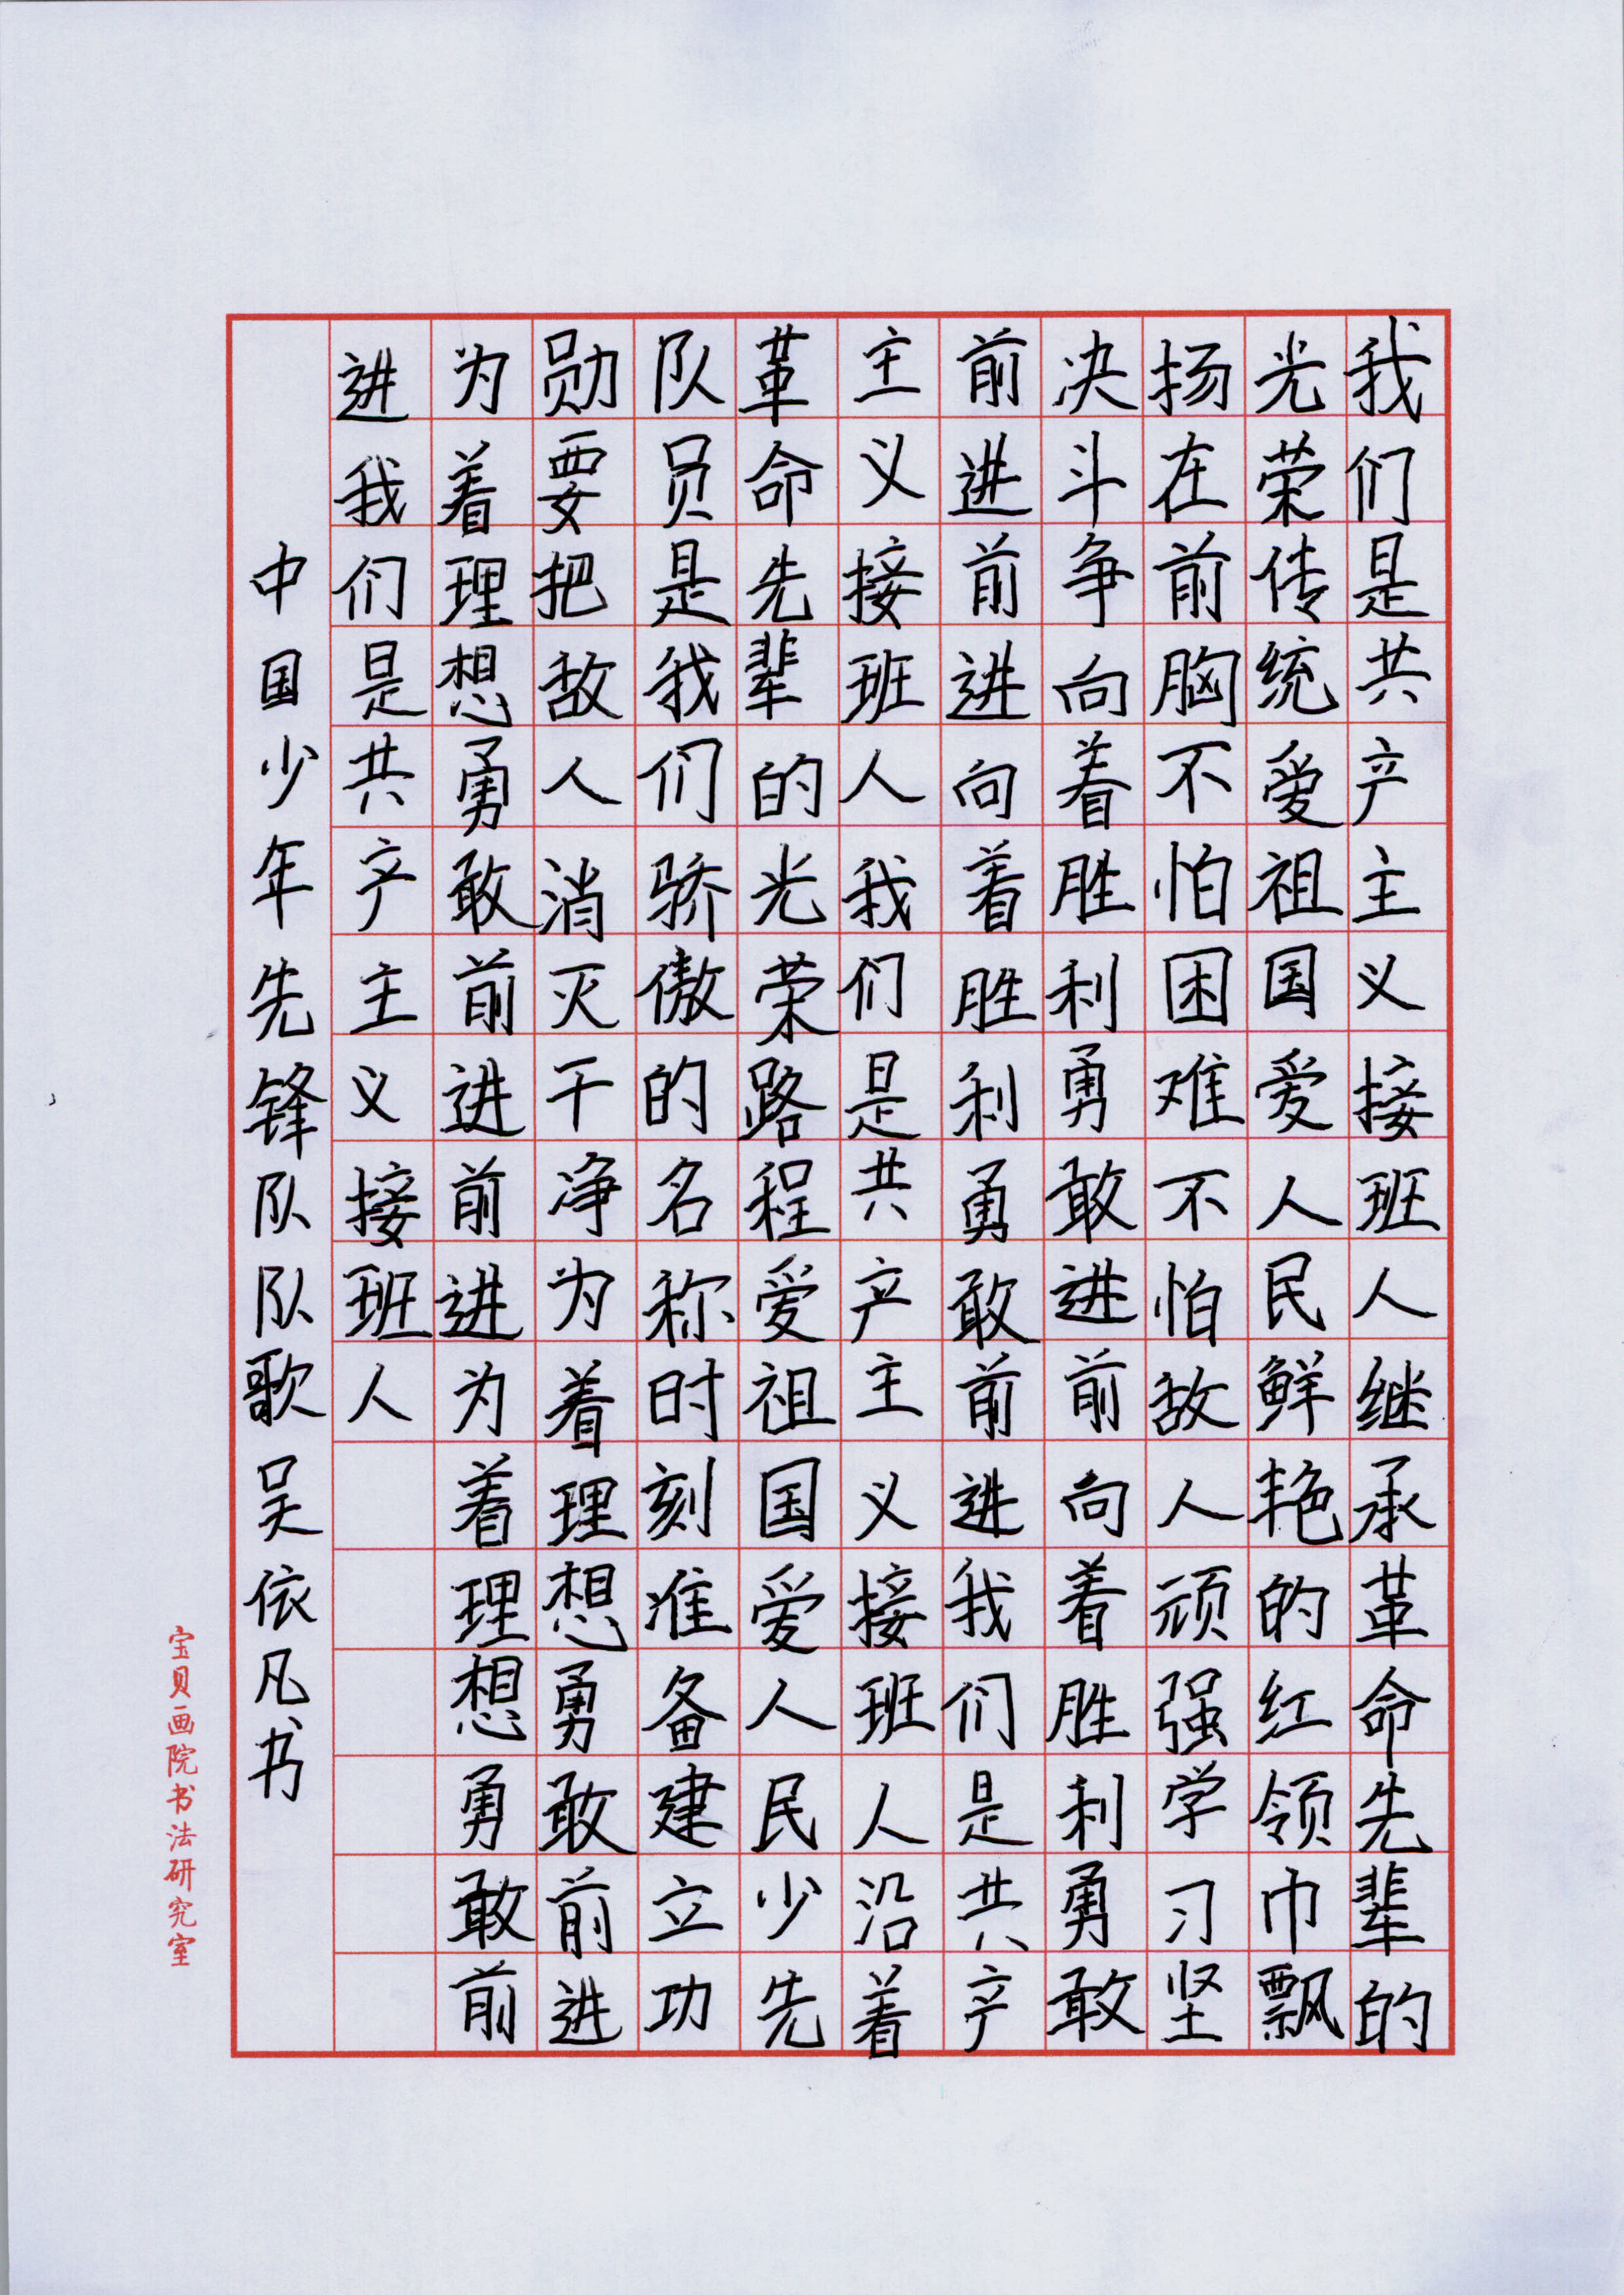 我们是共产主义接班人继承革命先辈的
光荣传统爱祖国爱人民鲜艳的红领巾飘
扬在前胸不怕困难不怕敌人顽强学习坚
决斗争向着胜利勇敢进前向着胜利勇敢
前进前进向着胜利勇敢前进我们是共产
主义接班人我们是共产主义接班人沿着
革命先辈的光荣路程爱祖国爱人民少先
队员是我们骄傲的名称时刻准备建立功
勋要把敌人消灭干净为着理想勇敢前进
为着理想勇敢前进前进为着理想勇敢前
进我们是共产主义接班人
中国少年先锋队队歌吴依凡书
宝贝画院书法研究室